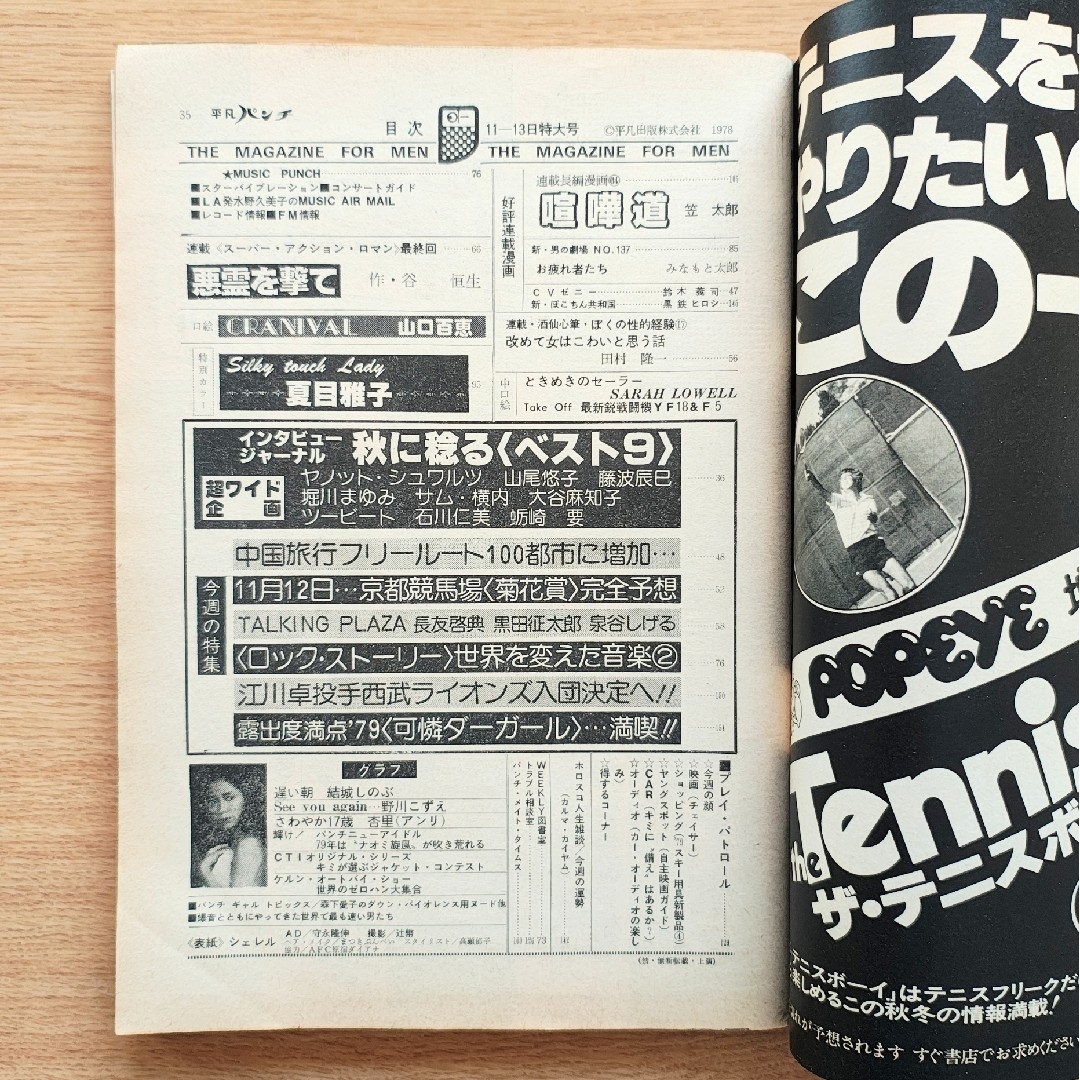 35 平凡パンチ
目次
11—13日特大号 ©平凡出版株式会社 1978
THE MAGAZINE FOR MEN
THE MAGAZINE FOR MEN
★MUSIC PUNCH 76
■スターバイブレーション■コンサートガイド
■LA発水野久美子のMUSIC AIR MAIL
■レコード情報■FM情報
連載〈スーパー・アクション・ロマン〉最終回 66
悪霊を撃て 作・谷 恒生
口絵 CRANIVAL 山口百恵
特別カラー
Silky touch Lady
夏目雅子 95
好評連載漫画
連載長編漫画
喧嘩道 笠 太郎
新・男の劇場 NO.137 85
お疲れ者たち みなもと太郎
CVゼニー 鈴木義司 47
新・ぽこちん共和国 黒鉄ヒロシ
連載・酒仙心筆・ぼくの性的経験⑰
改めて女はこわいと思う話
田村 隆一 56
中口絵
ときめきのセーラー
SARAH LOWELL
Take Off 最新鋭戦闘機YF18&F5
インタビュージャーナル 秋に稔る〈ベスト9〉
超ワイド企画
ヤノット・シュワルツ 山尾悠子 藤波辰巳 36
堀川まゆみ サム・横内 大谷麻知子
ツービート 石川仁美 蛎崎 要
今週の特集
中国旅行フリールート100都市に増加… 48
11月12日…京都競馬場〈菊花賞〉完全予想 53
TALKING PLAZA 長友啓典 黒田征太郎 泉谷しげる 58
〈ロック・ストーリー〉世界を変えた音楽② 76
江川卓投手西武ライオンズ入団決定へ!! 150
露出度満点'79〈可憐ダーガール〉…満喫!! 151
グラフ
遅い朝 結城しのぶ
See you again…野川こずえ
さわやか17歳 杏里(アンリ)
輝け! パンチニューアイドル
79年は"ナオミ旋風"が吹き荒れる
CTIオリジナル・シリーズ
キミが選ぶジャケット・コンテスト
ケルン・オートバイ・ショー
世界のゼロハン大集合
■パンチ ギャル トピックス/森下愛子のダウン・バイオレンス用ヌード
■爆音とともにやってきた世界で最も速い男たち
《表紙》シェレル
AD/守永隆伸 撮影/辻靖
■プレイ・パトロール 121
☆今週の顔
☆映画(チェイサー)
☆ショッピング('79スキー用具新製品④)
☆ヤングスポット(自主映画ガイド)
☆CAR(キミに"備え"はあるか?)
☆オーディオ(カー・オーディオの楽しみ)
☆得するコーナー
ホロスコ人生雑談/今週の運勢
(カルマ・カーヤム)
WEEKLY図書室
トラブル相談室
パンチ・メイト・タイムス
(禁・無断転載・上演)
テニスを
やりたい
この一
POPEYE
the Tennis
ザ・テニスボ
テニスボーイ」はテニスフリークだ
楽しめるこの秋冬の情報満載!
が予想されます すぐ書店でお求めください